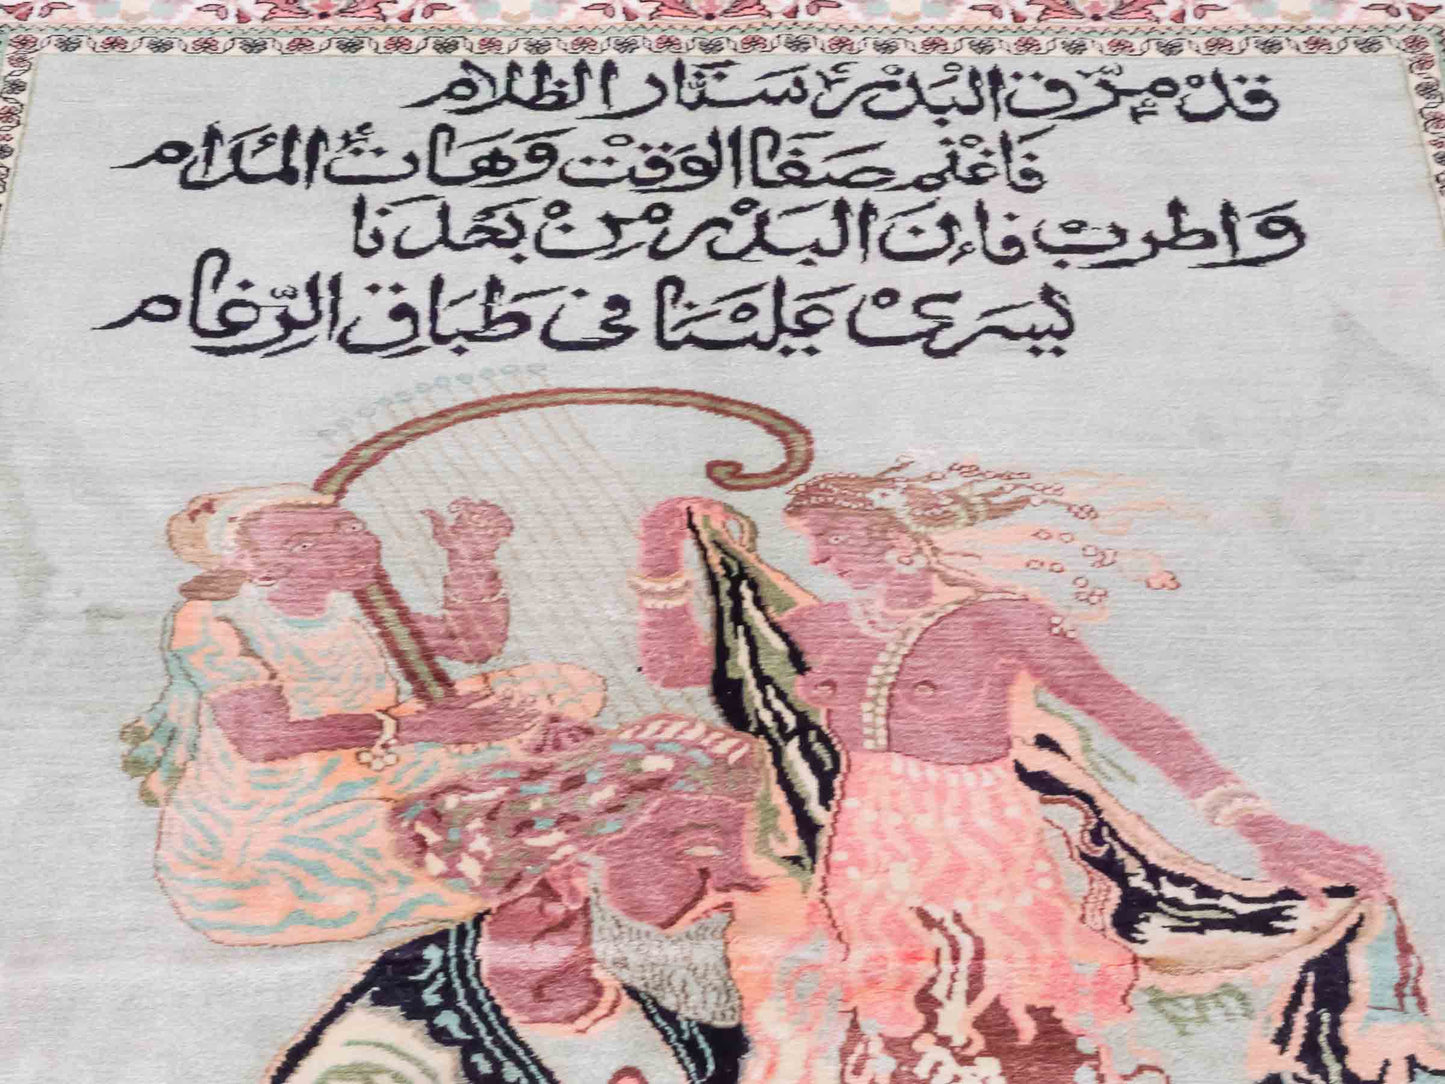 قَدْ مَزَّقَ الْبَدْرُ سَتَّارَ الظَّلام
فَاغْنَم صَفَا الْوَقْتْ وَهَاتُ الْمُدَام
وَاطرَبْ فَإِنَ الْبَدْر مِنْ بَعْدِنَا
يَسرَىْ عَلَيْنَا فى طَبَاقِ الرِّغَام